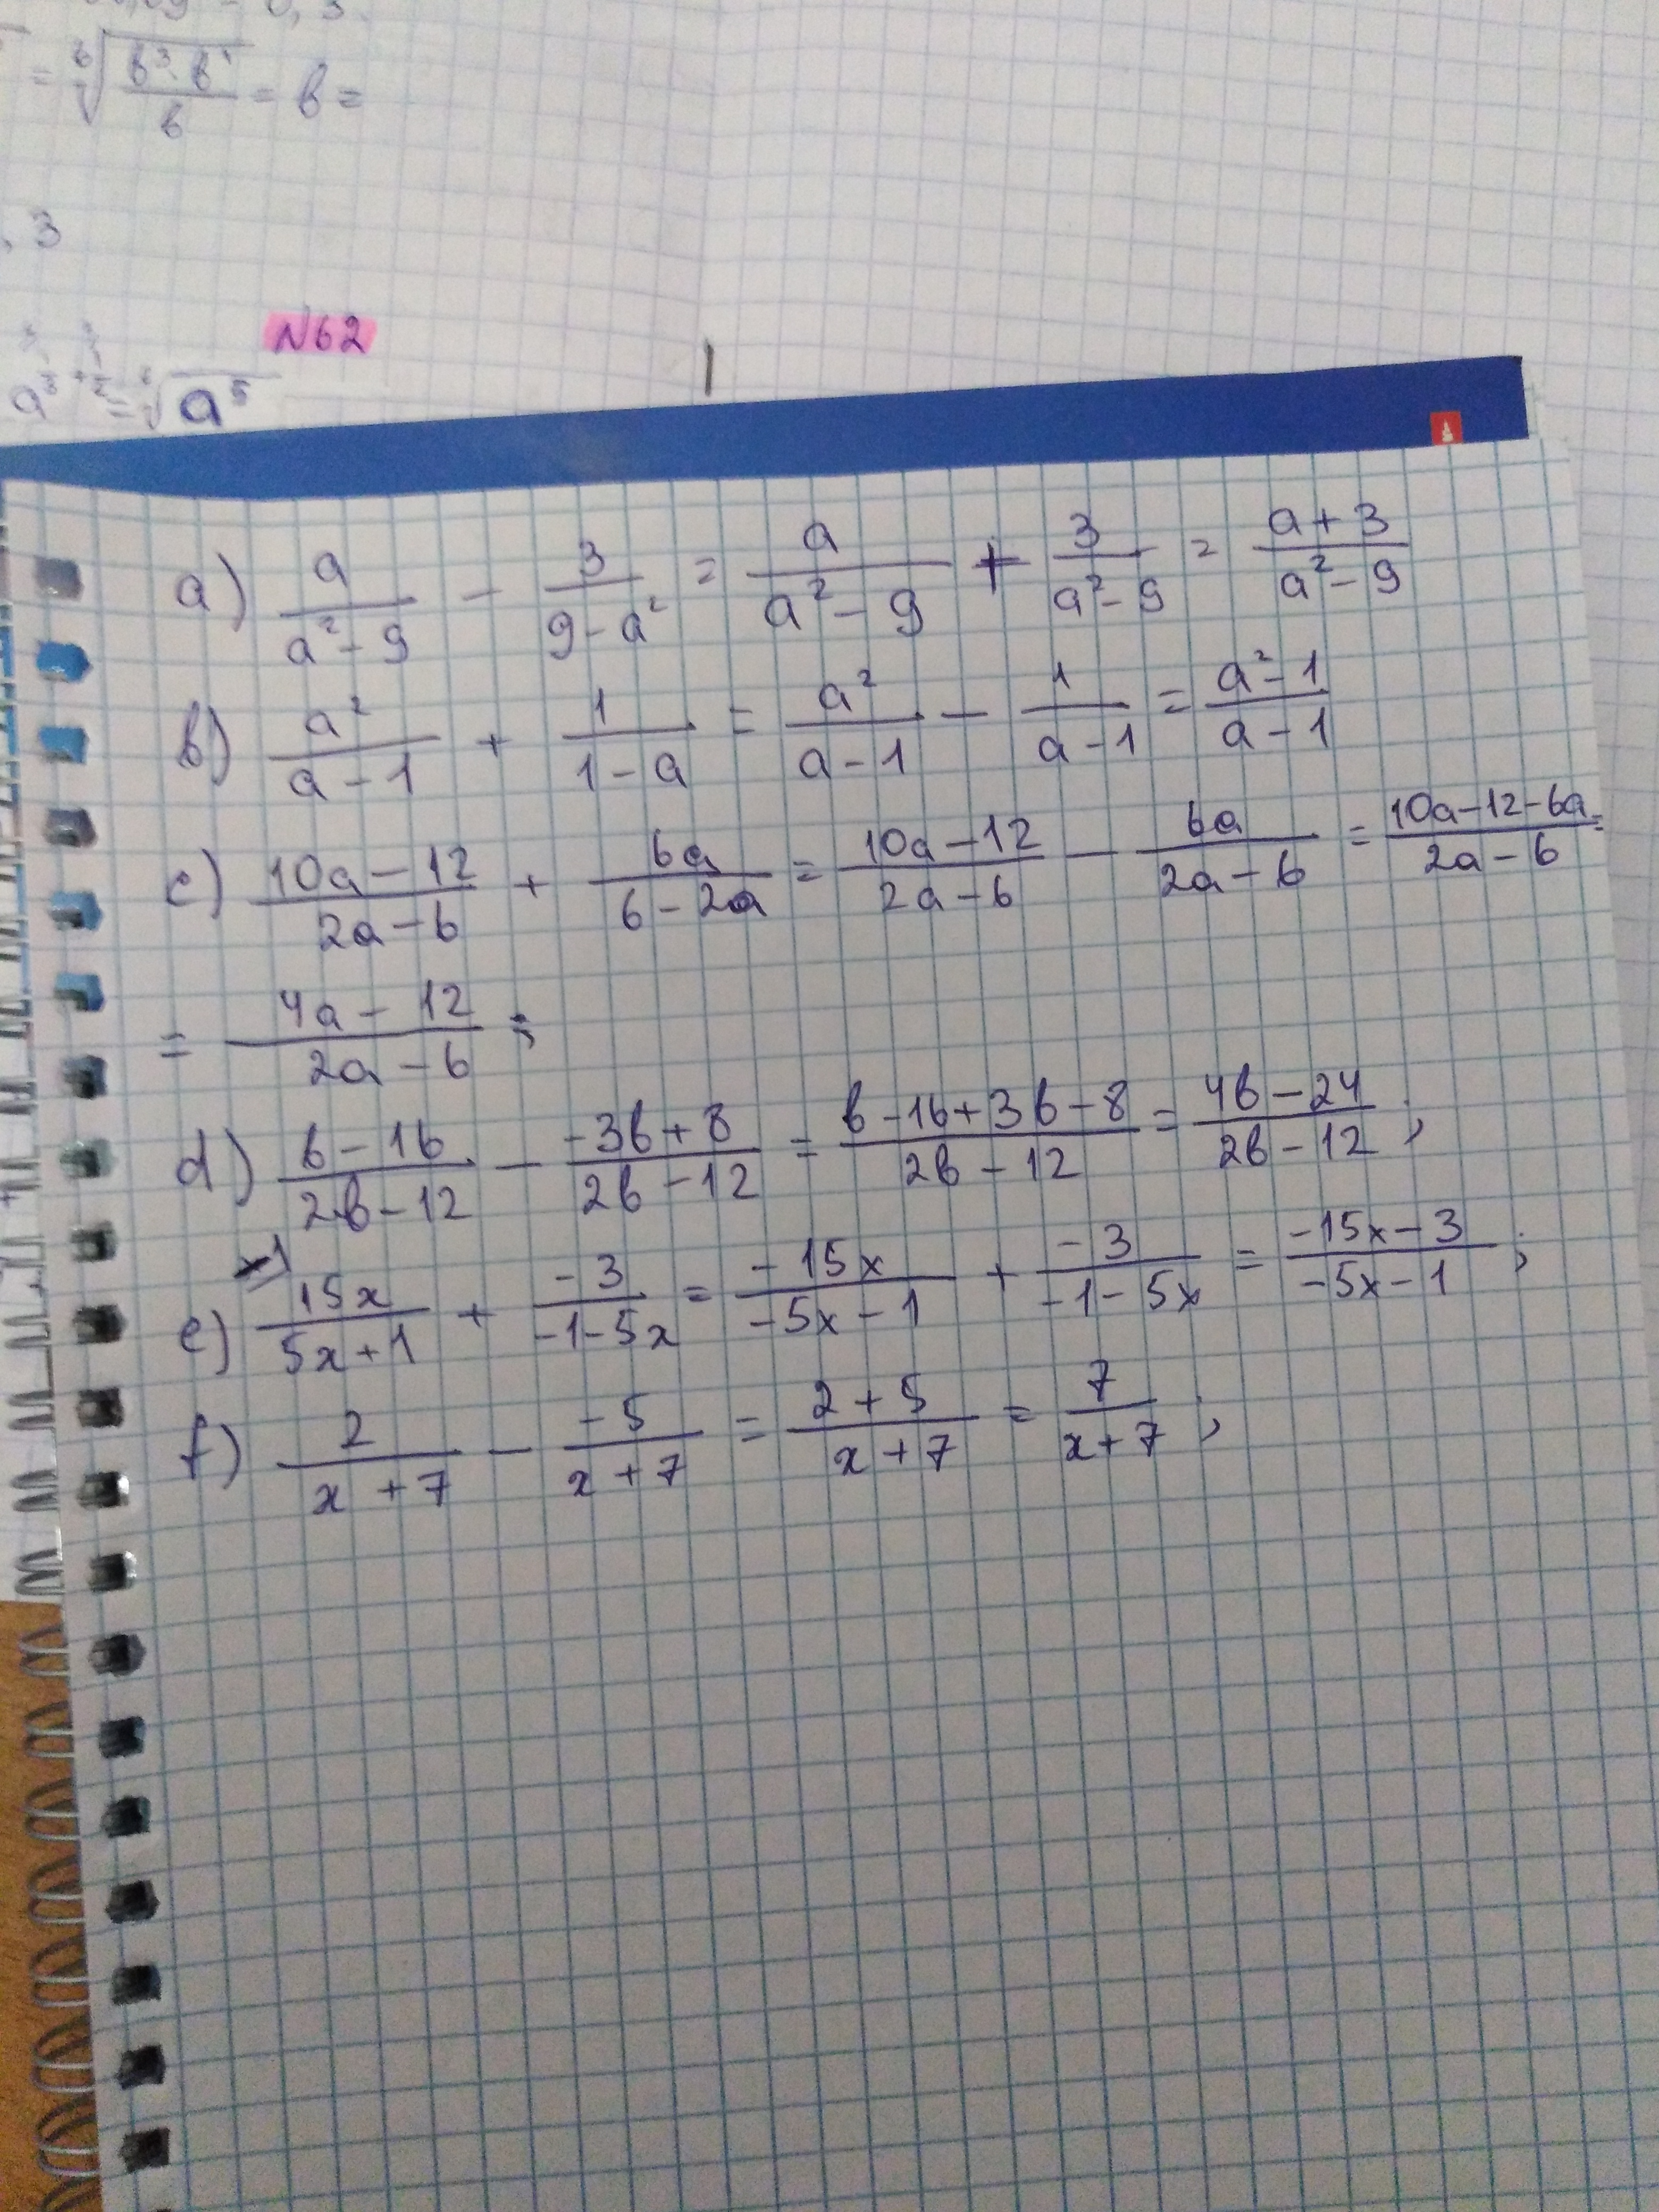 = \sqrt[6]{\frac{b^3 \cdot b^4}{b}} = b =
, 3
N62
= \sqrt{a^5}
a) \frac{a}{a^2-9} - \frac{3}{9-a^2} = \frac{a}{a^2-9} + \frac{3}{a^2-9} = \frac{a+3}{a^2-9}
b) \frac{a^2}{a-1} + \frac{1}{1-a} = \frac{a^2}{a-1} - \frac{1}{a-1} = \frac{a^2-1}{a-1}
c) \frac{10a-12}{2a-6} + \frac{6a}{6-2a} = \frac{10a-12}{2a-6} - \frac{6a}{2a-6} = \frac{10a-12-6a}{2a-6} =
= \frac{4a-12}{2a-6} ;
d) \frac{b-16}{2b-12} - \frac{-3b+8}{2b-12} = \frac{b-16+3b-8}{2b-12} = \frac{4b-24}{2b-12} ;
e) \frac{15x}{5x+1} + \frac{-3}{-1-5x} = \frac{-15x}{-5x-1} + \frac{-3}{-1-5x} = \frac{-15x-3}{-5x-1} ;
f) \frac{2}{x+7} - \frac{-5}{x+7} = \frac{2+5}{x+7} = \frac{7}{x+7} ;